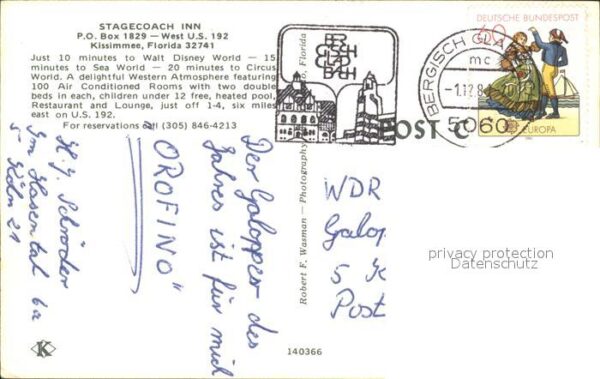 STAGECOACH INN
P.O. Box 1829 — West U.S. 192
Kissimmee, Florida 32741
Just 10 minutes to Walt Disney World — 15
minutes to Sea World — 20 minutes to Circus
World. A delightful Western Atmosphere featuring
100 Air Conditioned Rooms with two double
beds in each, children under 12 free, heated pool,
Restaurant and Lounge, just off 1-4, six miles
east on U.S. 192.
For reservations call (305) 846-4213
H. J. Schröder
Im Hasental 6a
5 Köln 21
Der Galopper des
Jahres ist für mich
"OROFINO"
Robert F. Wasman — Photography
o, Florida
140366
K
BER
GISCH
GLAD
BACH
POST C
BERGISCH GLA
mc
5060
DEUTSCHE BUNDESPOST
60
EUROPA
WDR
Galop
5 K
Post
privacy protection
Datenschutz